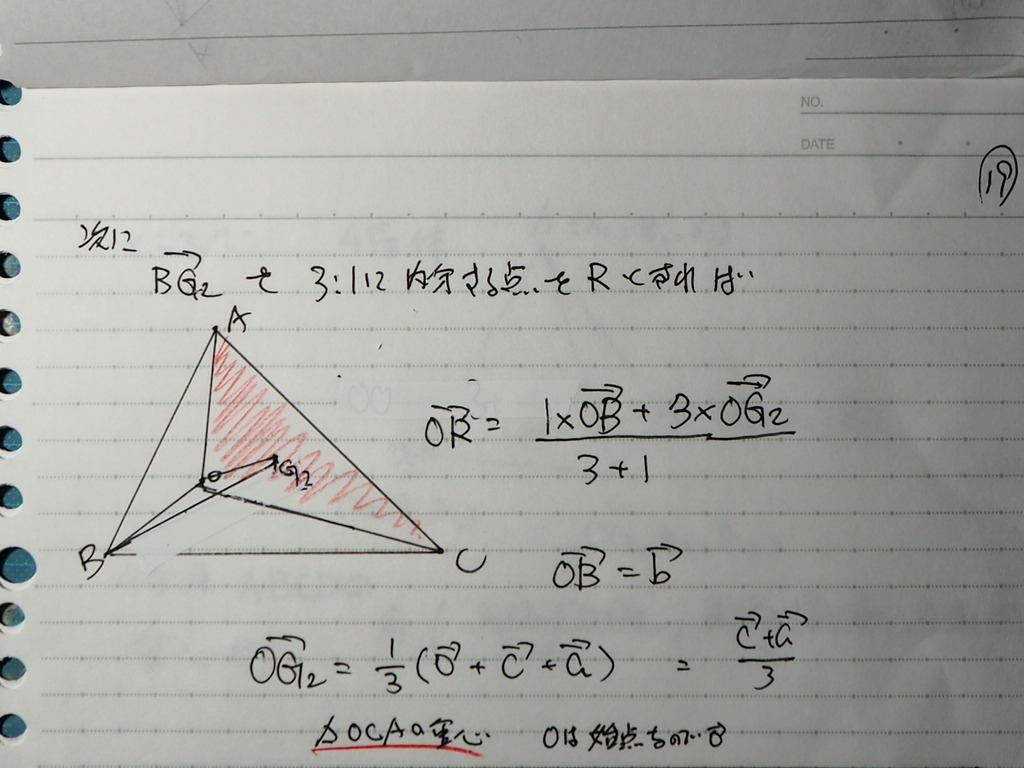 NO.
DATE
⑲
次に
$\overrightarrow{BG_2}$ を 3:1に内分する点をRとすれば
A
$\overrightarrow{OR} = \frac{1 \times \overrightarrow{OB} + 3 \times \overrightarrow{OG_2}}{3+1}$
O
G₂
B
C
$\overrightarrow{OB} = \vec{b}$
$\overrightarrow{OG_2} = \frac{1}{3}(\vec{0} + \vec{c} + \vec{a}) = \frac{\vec{c} + \vec{a}}{3}$
△OCAの重心 Oは始点なので $\vec{0}$